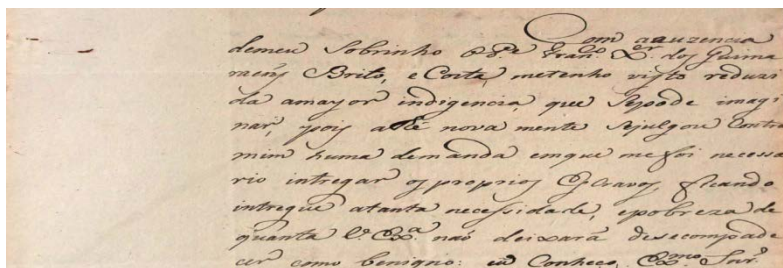 Com a auzencia
demeu Sobrinho o P.e Fran.co X.er dos Guima
raens Brito, e Costa, metenho visto reduzi
da amayor indigencia, que sepode imagi
nar, pois athe nova mente sejulgou contra
mim huma demanda emque me foi necessa
rio intregar os proprios Escravos, ficando
intregue atanta necessidade, epobreza de
quanta V. Ex.a naõ deixará desecompade
cer como benigno: eu Conheço, Ex.mo Snr.